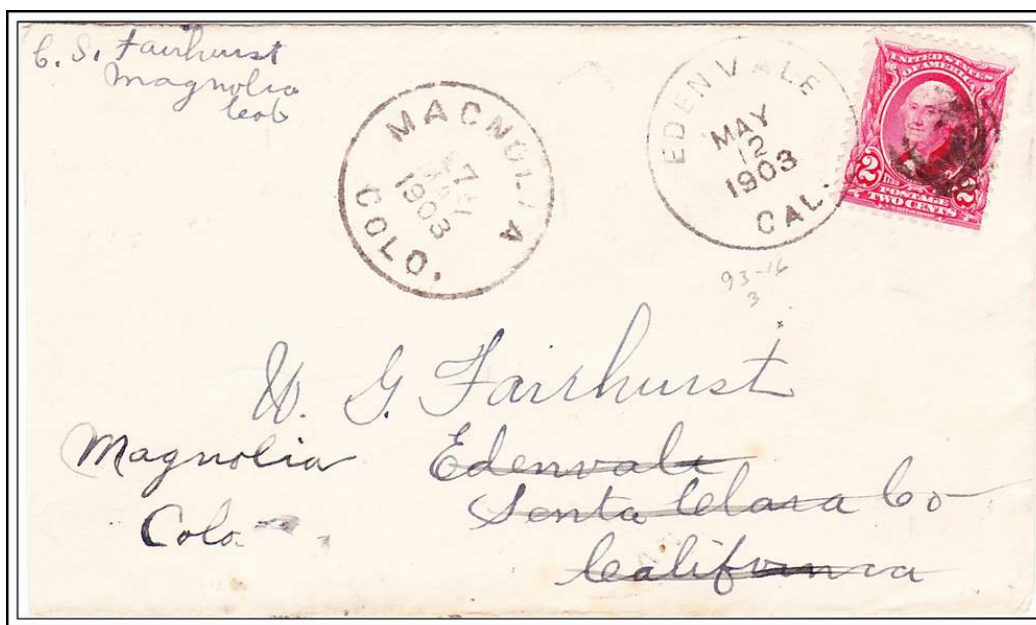 C. S. Fairhurst
Magnolia
Colo
MAGNOLIA
7
1903
COLO.
EDENVALE
MAY
12
1903
CAL.
UNITED STATES
OF AMERICA
2 2
POSTAGE
TWO CENTS
93-16
3
W. G. Fairhurst
Magnolia Edenvale
Colo Santa Clara Co
California